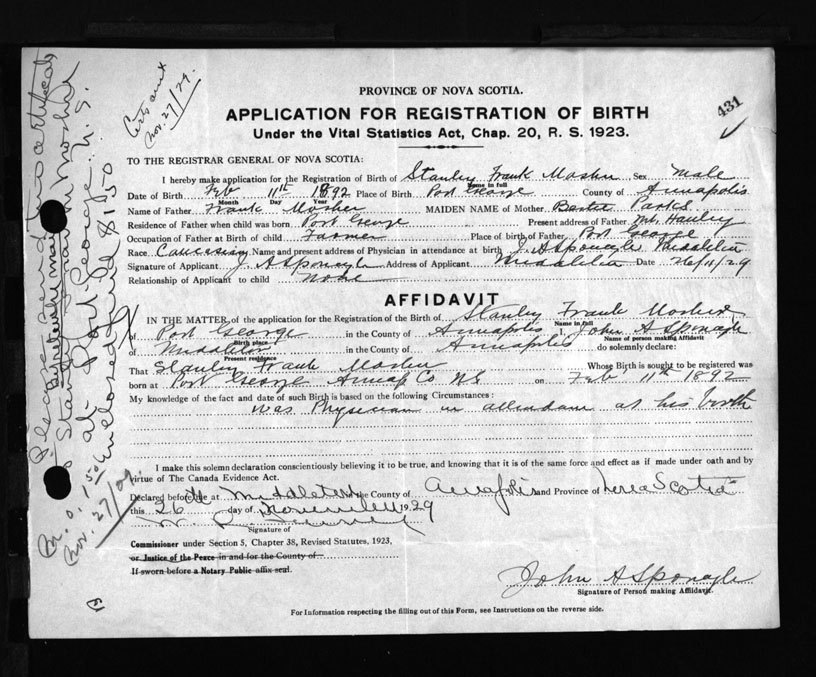 PROVINCE OF NOVA SCOTIA.
APPLICATION FOR REGISTRATION OF BIRTH
Under the Vital Statistics Act, Chap. 20, R. S. 1923.
431
Certs sent
Nov. 27/29.
TO THE REGISTRAR GENERAL OF NOVA SCOTIA:
I hereby make application for the Registration of Birth of Stanley Frank Mosher Sex Male
Name in full
Date of Birth Feb 11th 1892 Place of Birth Port George County of Annapolis
Month Day Year
Name of Father Frank Mosher MAIDEN NAME of Mother Parks
Residence of Father when child was born Port George Present address of Father Mt. Hanley
Occupation of Father at Birth of child Farmer Place of birth of Father Port George
Race Name and present address of Physician in attendance at birth J. A Sponagle Middleton
Signature of Applicant J. A Sponagle Address of Applicant Middleton Date 26/11/29
Relationship of Applicant to child None
AFFIDAVIT
IN THE MATTER, of the application for the Registration of the Birth of Stanley Frank Mosher
Name in full
of Port George in the County of Annapolis I, John A Sponagle
Birth place
Name of person making Affidavit
of Middleton in the County of Annapolis do solemnly declare:
Present residence
That Stanley Frank Mosher Whose Birth is sought to be registered was
born at Port George Annap Co NS on Feb 11th 1892
My knowledge of the fact and date of such Birth is based on the following Circumstances:
was Physician in attendance at his birth
I make this solemn declaration conscientiously believing it to be true, and knowing that it is of the same force and effect as if made under oath and by
virtue of The Canada Evidence Act.
Declared before me at Middleton the County of Annapolis and Province of Nova Scotia
this 26th day of November 1929
Signature of
Commissioner under Section 5, Chapter 38, Revised Statutes, 1923,
or Justice of the Peace in and for the County of
If sworn before a Notary Public affix seal.
John A Sponagle
Signature of Person making Affidavit.
For Information respecting the filling out of this Form, see Instructions on the reverse side.
Please send two certificates
Stanley Frank Mosher
at Port George N.S.
Enclosed find $1.50
M. O. 1.50
Nov. 27/29.